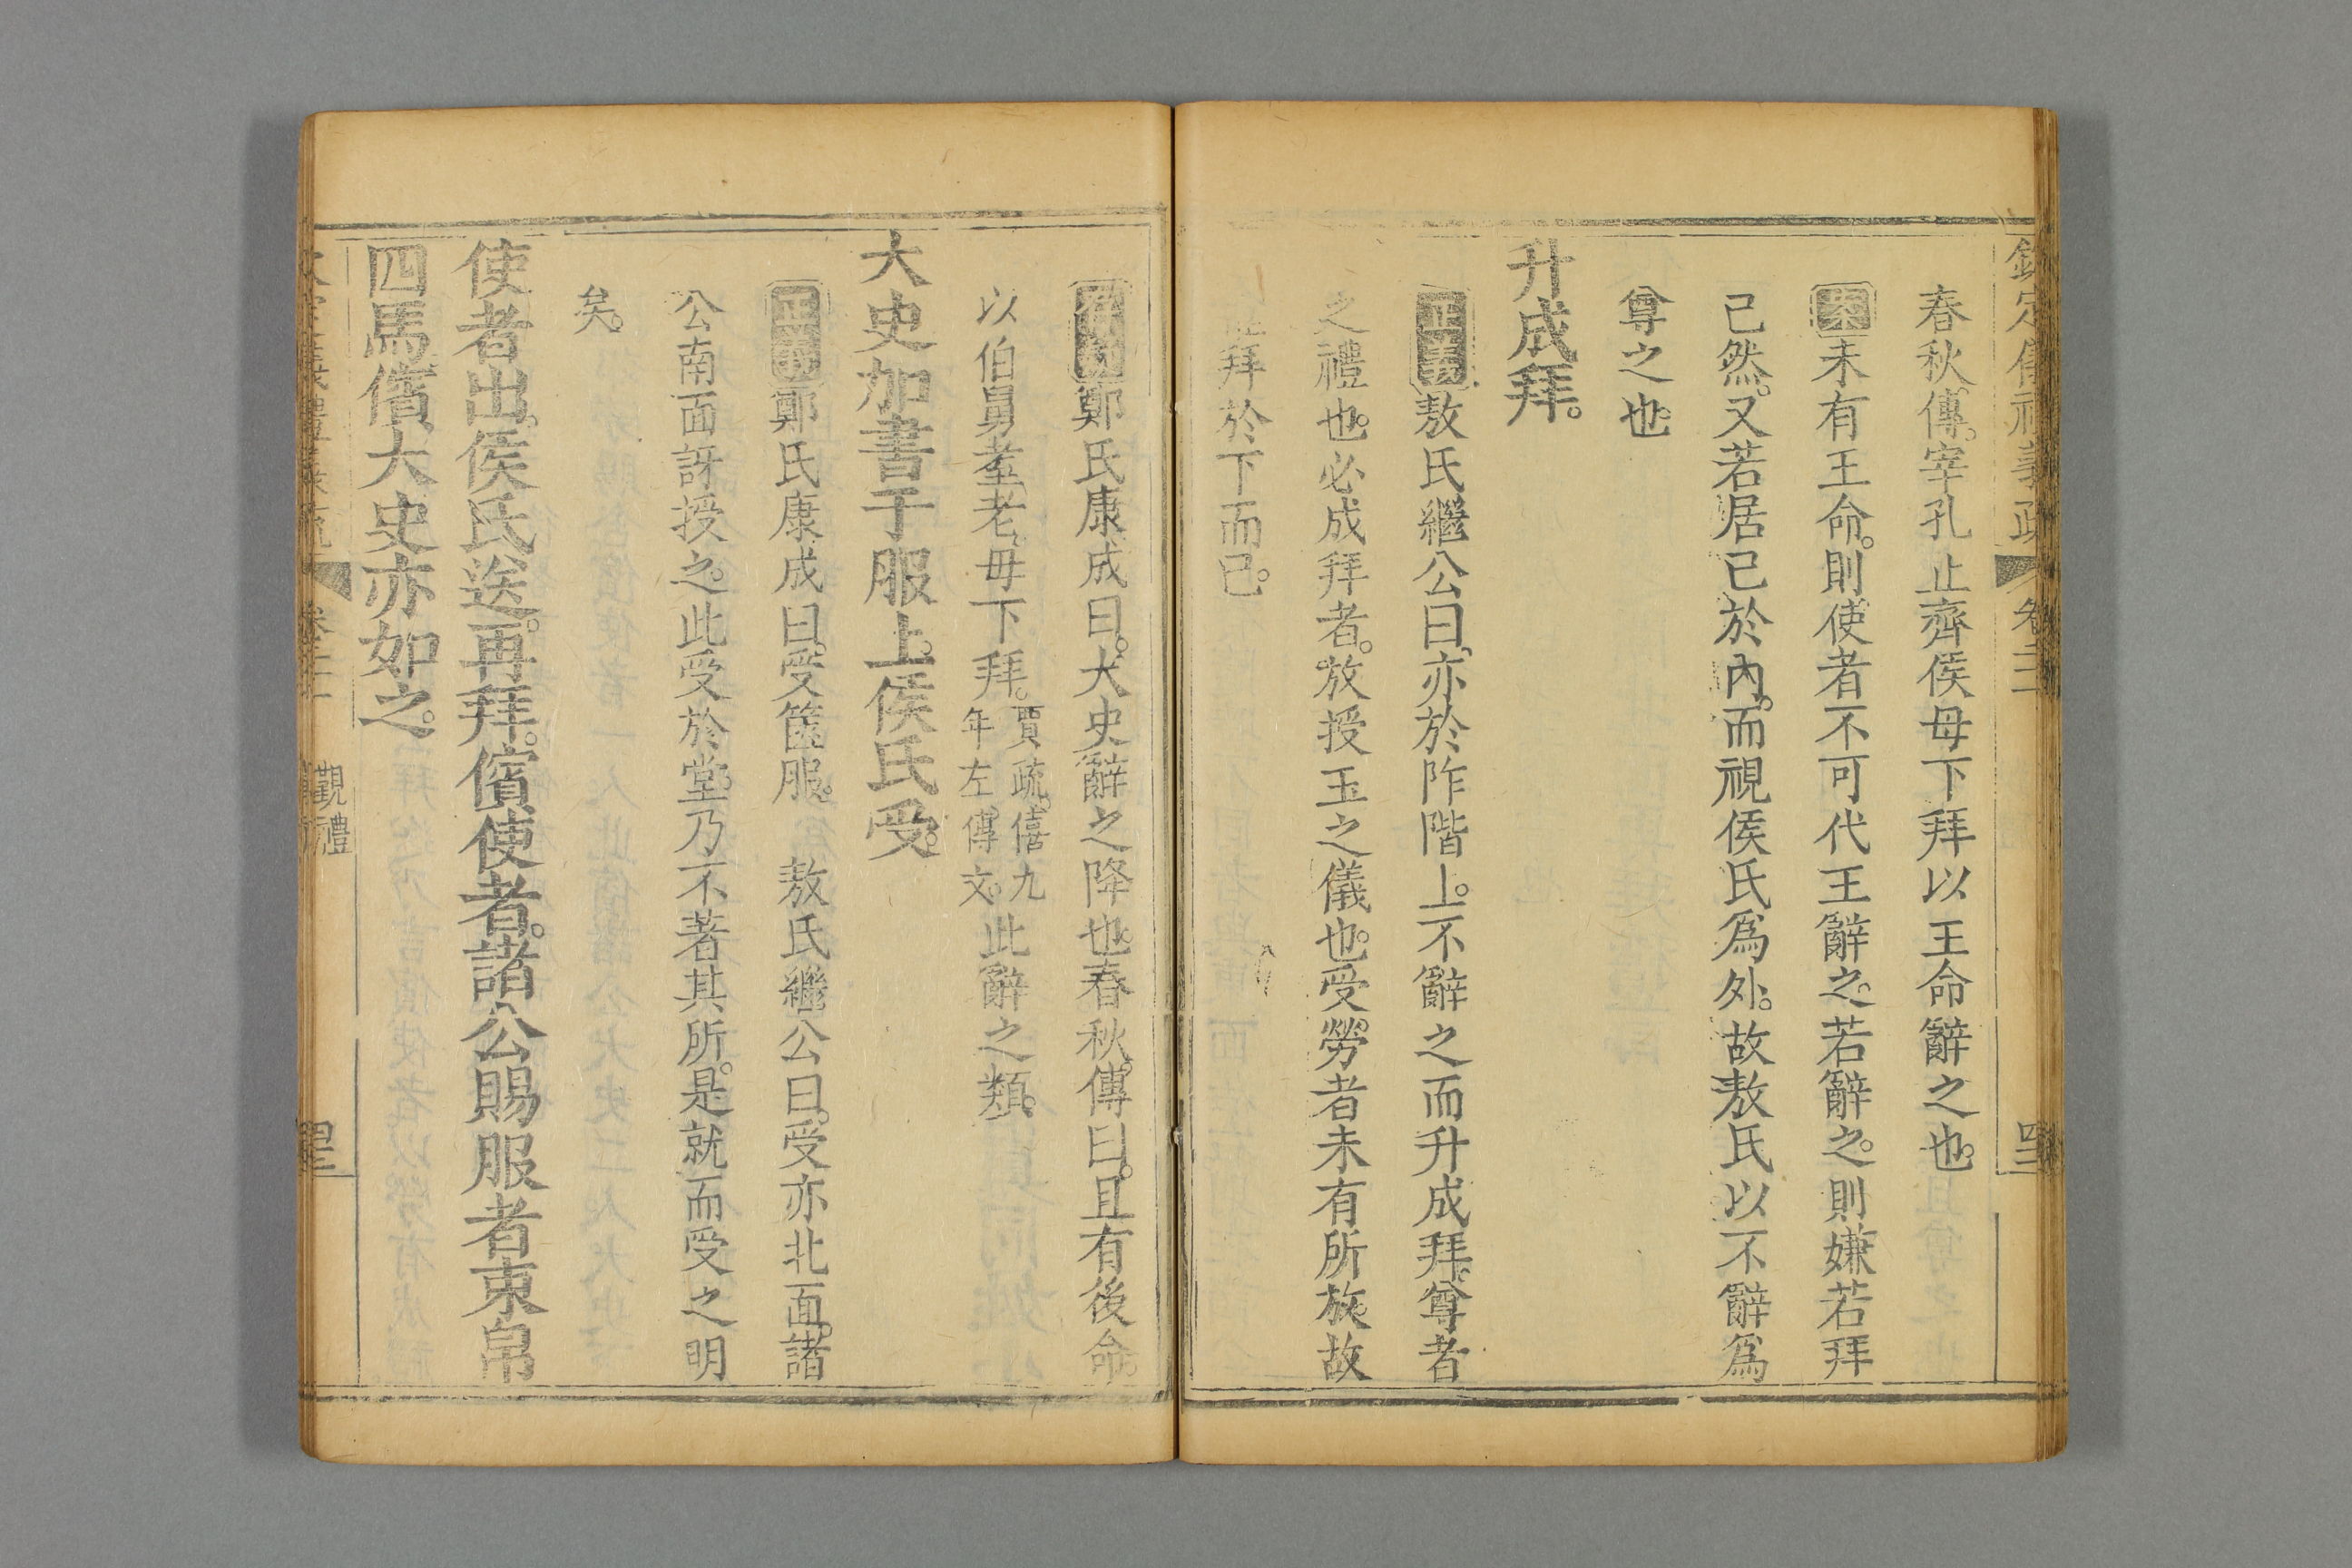 春秋傳。宰孔止齊侯毋下拜以王命辭之也。
案未有王命。則使者不可代王辭之。若辭之。則嫌若拜
己然。又若居己於內。而視侯氏爲外。故敖氏以不辭爲
尊之也。
升成拜。
正義敖氏繼公曰。亦於阼階上。不辭之而升成拜。尊者
之禮也。必成拜者。放授玉之儀也。受勞者未有所放。故
拜於下而已。
鄭氏康成曰。大史辭之降也。春秋傳曰。且有後命。
以伯舅耋老。毋下拜。賈疏。僖九年左傳文。此辭之類。
大史加書于服上。侯氏受。
正義鄭氏康成曰。受篋服。 敖氏繼公曰。受亦北面。諸
公南面訝授之。此受於堂。乃不著其所。是就而受之明
矣。
使者出。侯氏送。再拜。儐使者。諸公賜服者束帛
四馬。儐大史亦如之。
覲禮